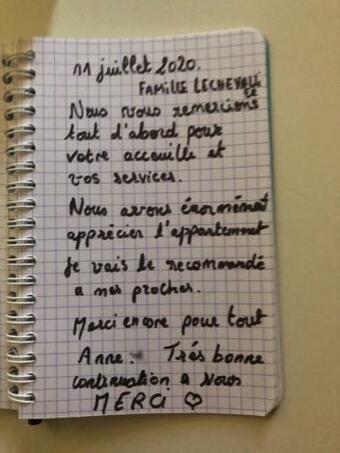 11 juillet 2020.
FAMILLE LECHEVALL
IE
Nous vous remercions
tout d'abord pour
votre accueille et
vos services.
Nous avons énormément
apprécier l'appartemmet
je vais le recommandé
a mes proches.
Merci encore pour tout
Anne. Trés bonne
continuation a vous
MERCI ♡